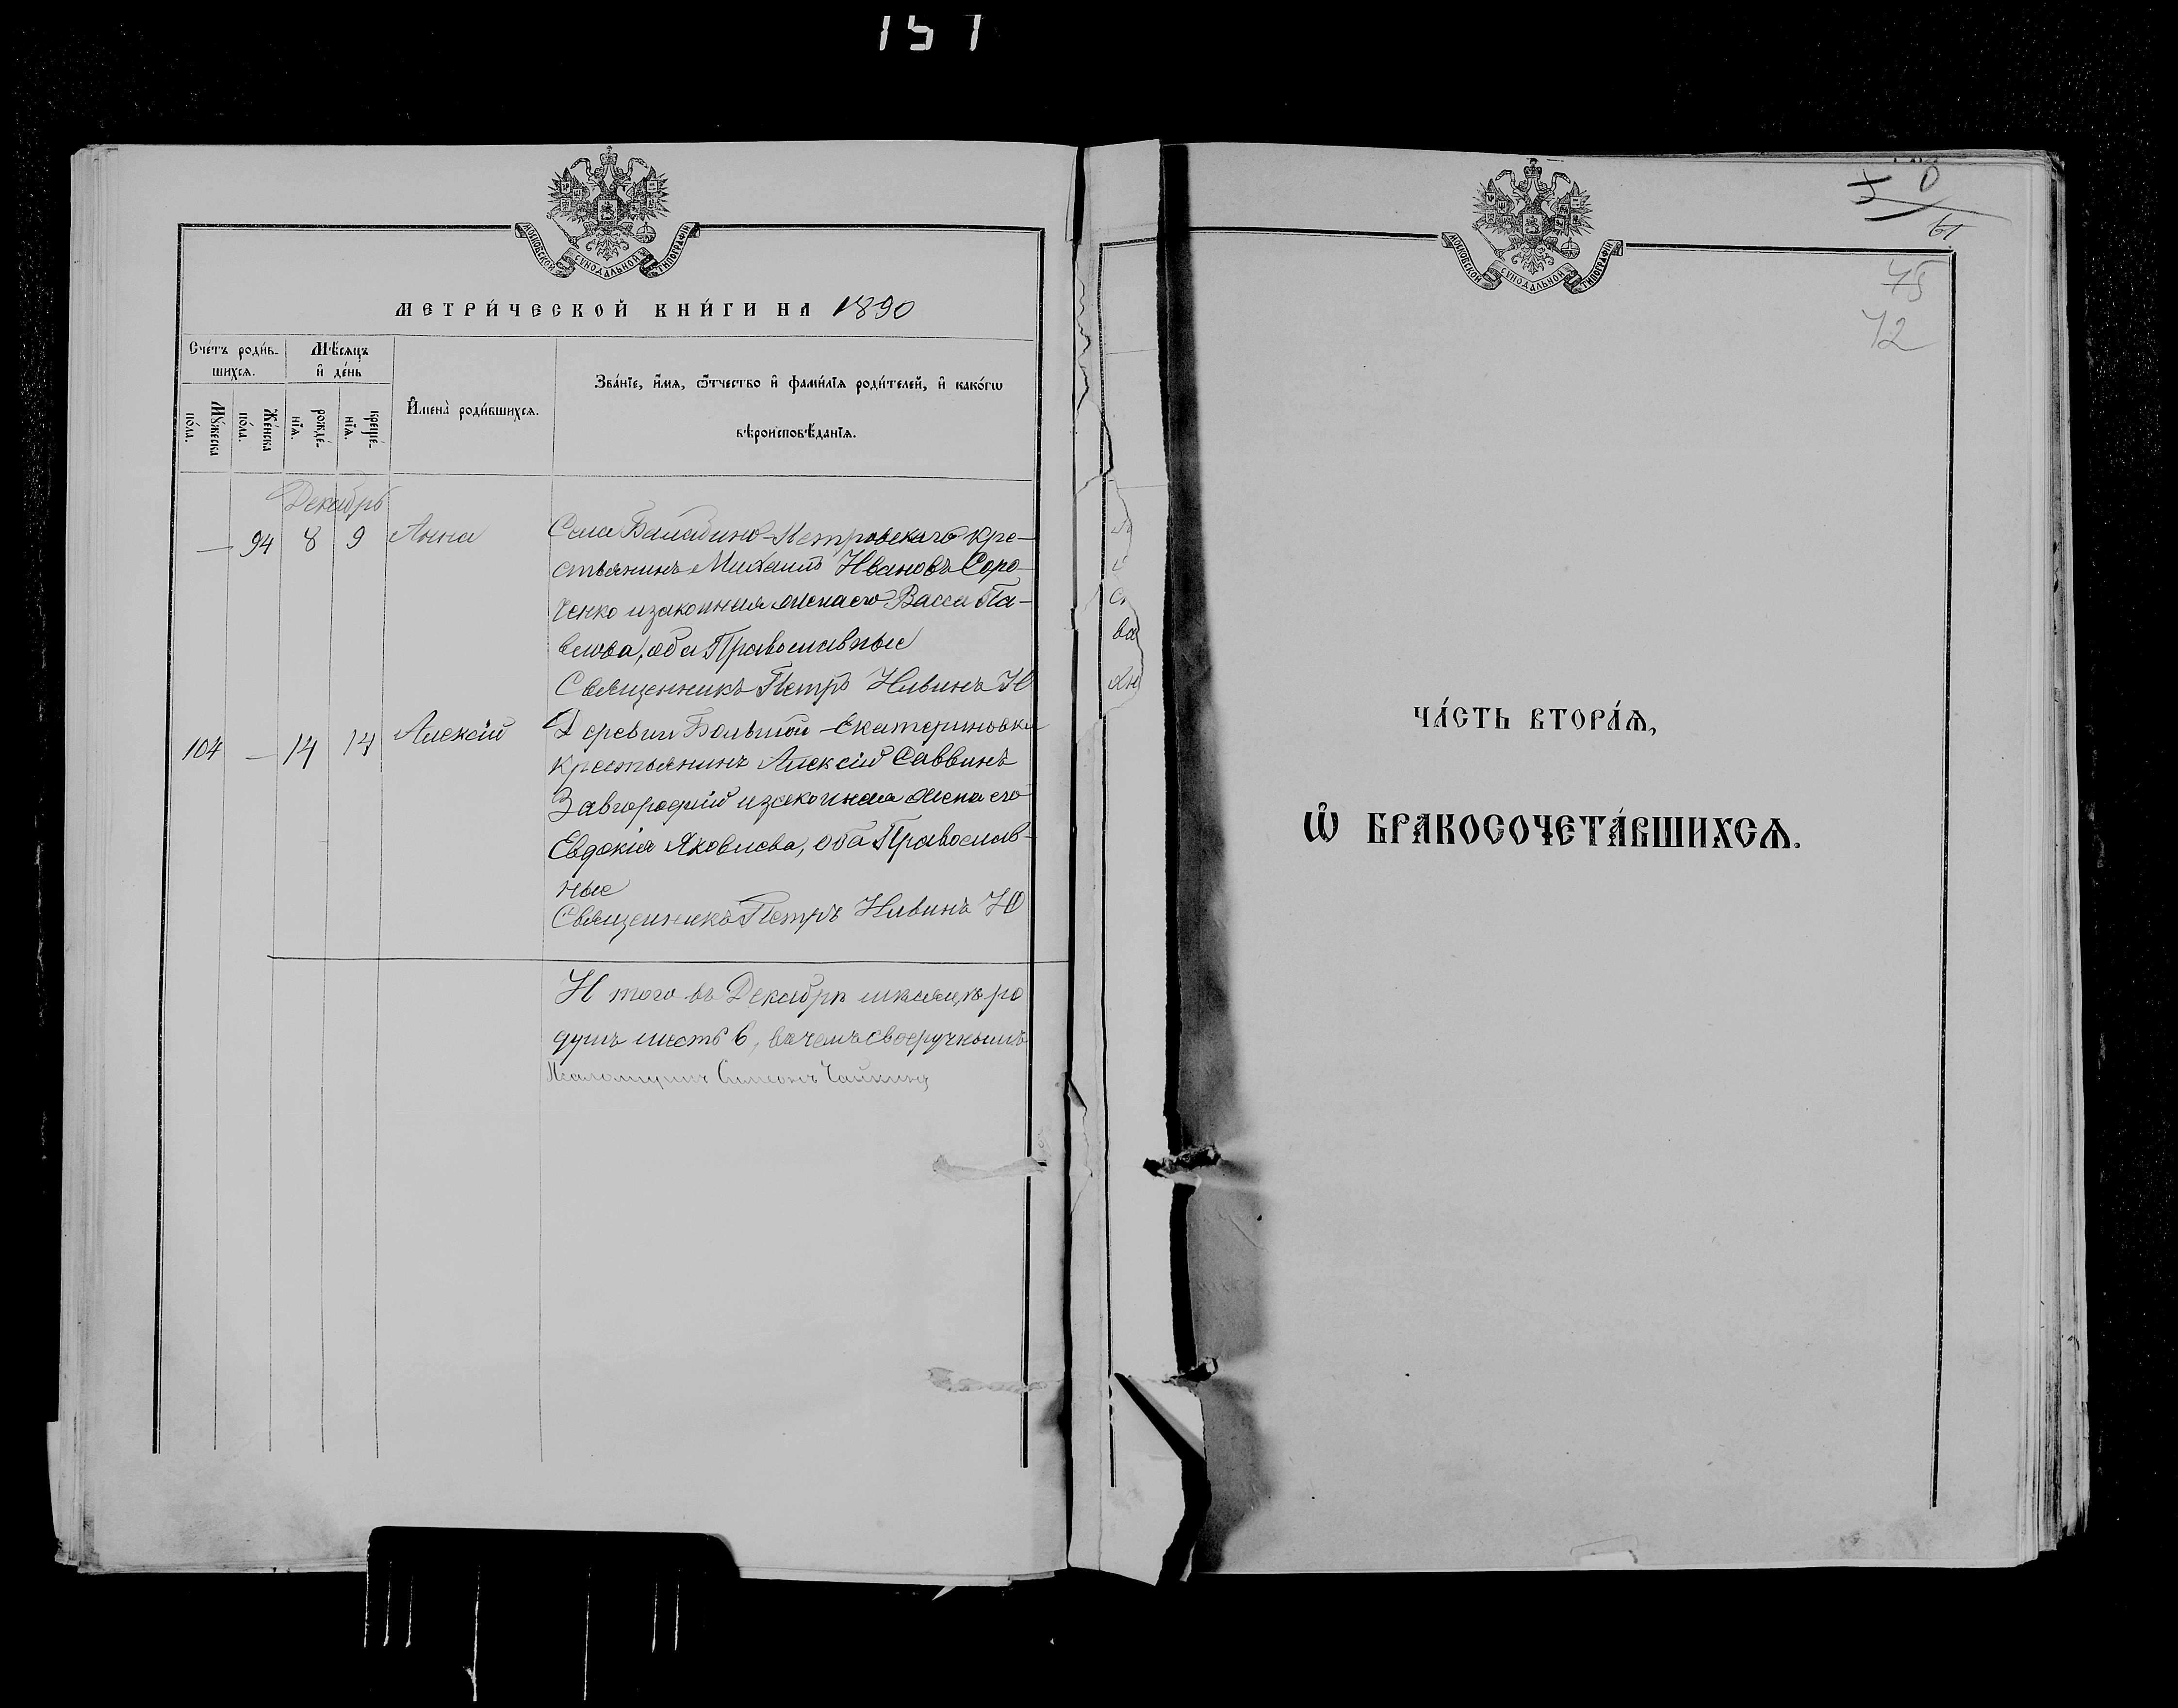 151
МОСКОВСКОЙ СѴНОДАЛЬНОЙ ТИПОГРАФІИ
МЕТРИ́ЧЕСКОЙ КНИ́ГИ НА 1890
Сче́тъ роди́в-
шихсѧ.
Мѣ́сѧцъ
и҆ де́нь
Мꙋ́жеска
по́ла.
Же́нска
по́ла.
рожде́-
нїѧ.
креще́-
нїѧ.
И҆мена̀ роди́вшихсѧ.
Зва́нїе, и҆́мѧ, ѻ҆́тчество и҆ фами́лїѧ роди́телей, и҆ како́гѡ
вѣроисповѣ́данїѧ.
Декабрь
— 94 8 9 Анна Села Балабино-Петровскаго кре-
стьянинъ Михаилъ Ивановъ Соро-
ченко и законная жена его Васса Па-
влова, оба Православные
Священникъ Петръ Нивинъ И
104 — 14 14 Алексій Деревни Большой-Екатериновки
крестьянинъ Алексій Саввинъ
Завгородній и законная жена его
Евдокія Яковлева, оба Православ-
ные
Священникъ Петръ Нивинъ И
Итого въ Декабрѣ мѣсяцѣ ро
душъ шесть 6, въ чемъ своеручнымъ
Псаломщикъ Симеонъ Чайкинъ
ва
МОСКОВСКОЙ СѴНОДАЛЬНОЙ ТИПОГРАФІИ
61
75
72
ЧА́СТЬ ВТОРА́Ѧ,
Ѡ҆ БРАКОСОЧЕТА́ВШИХСѦ.